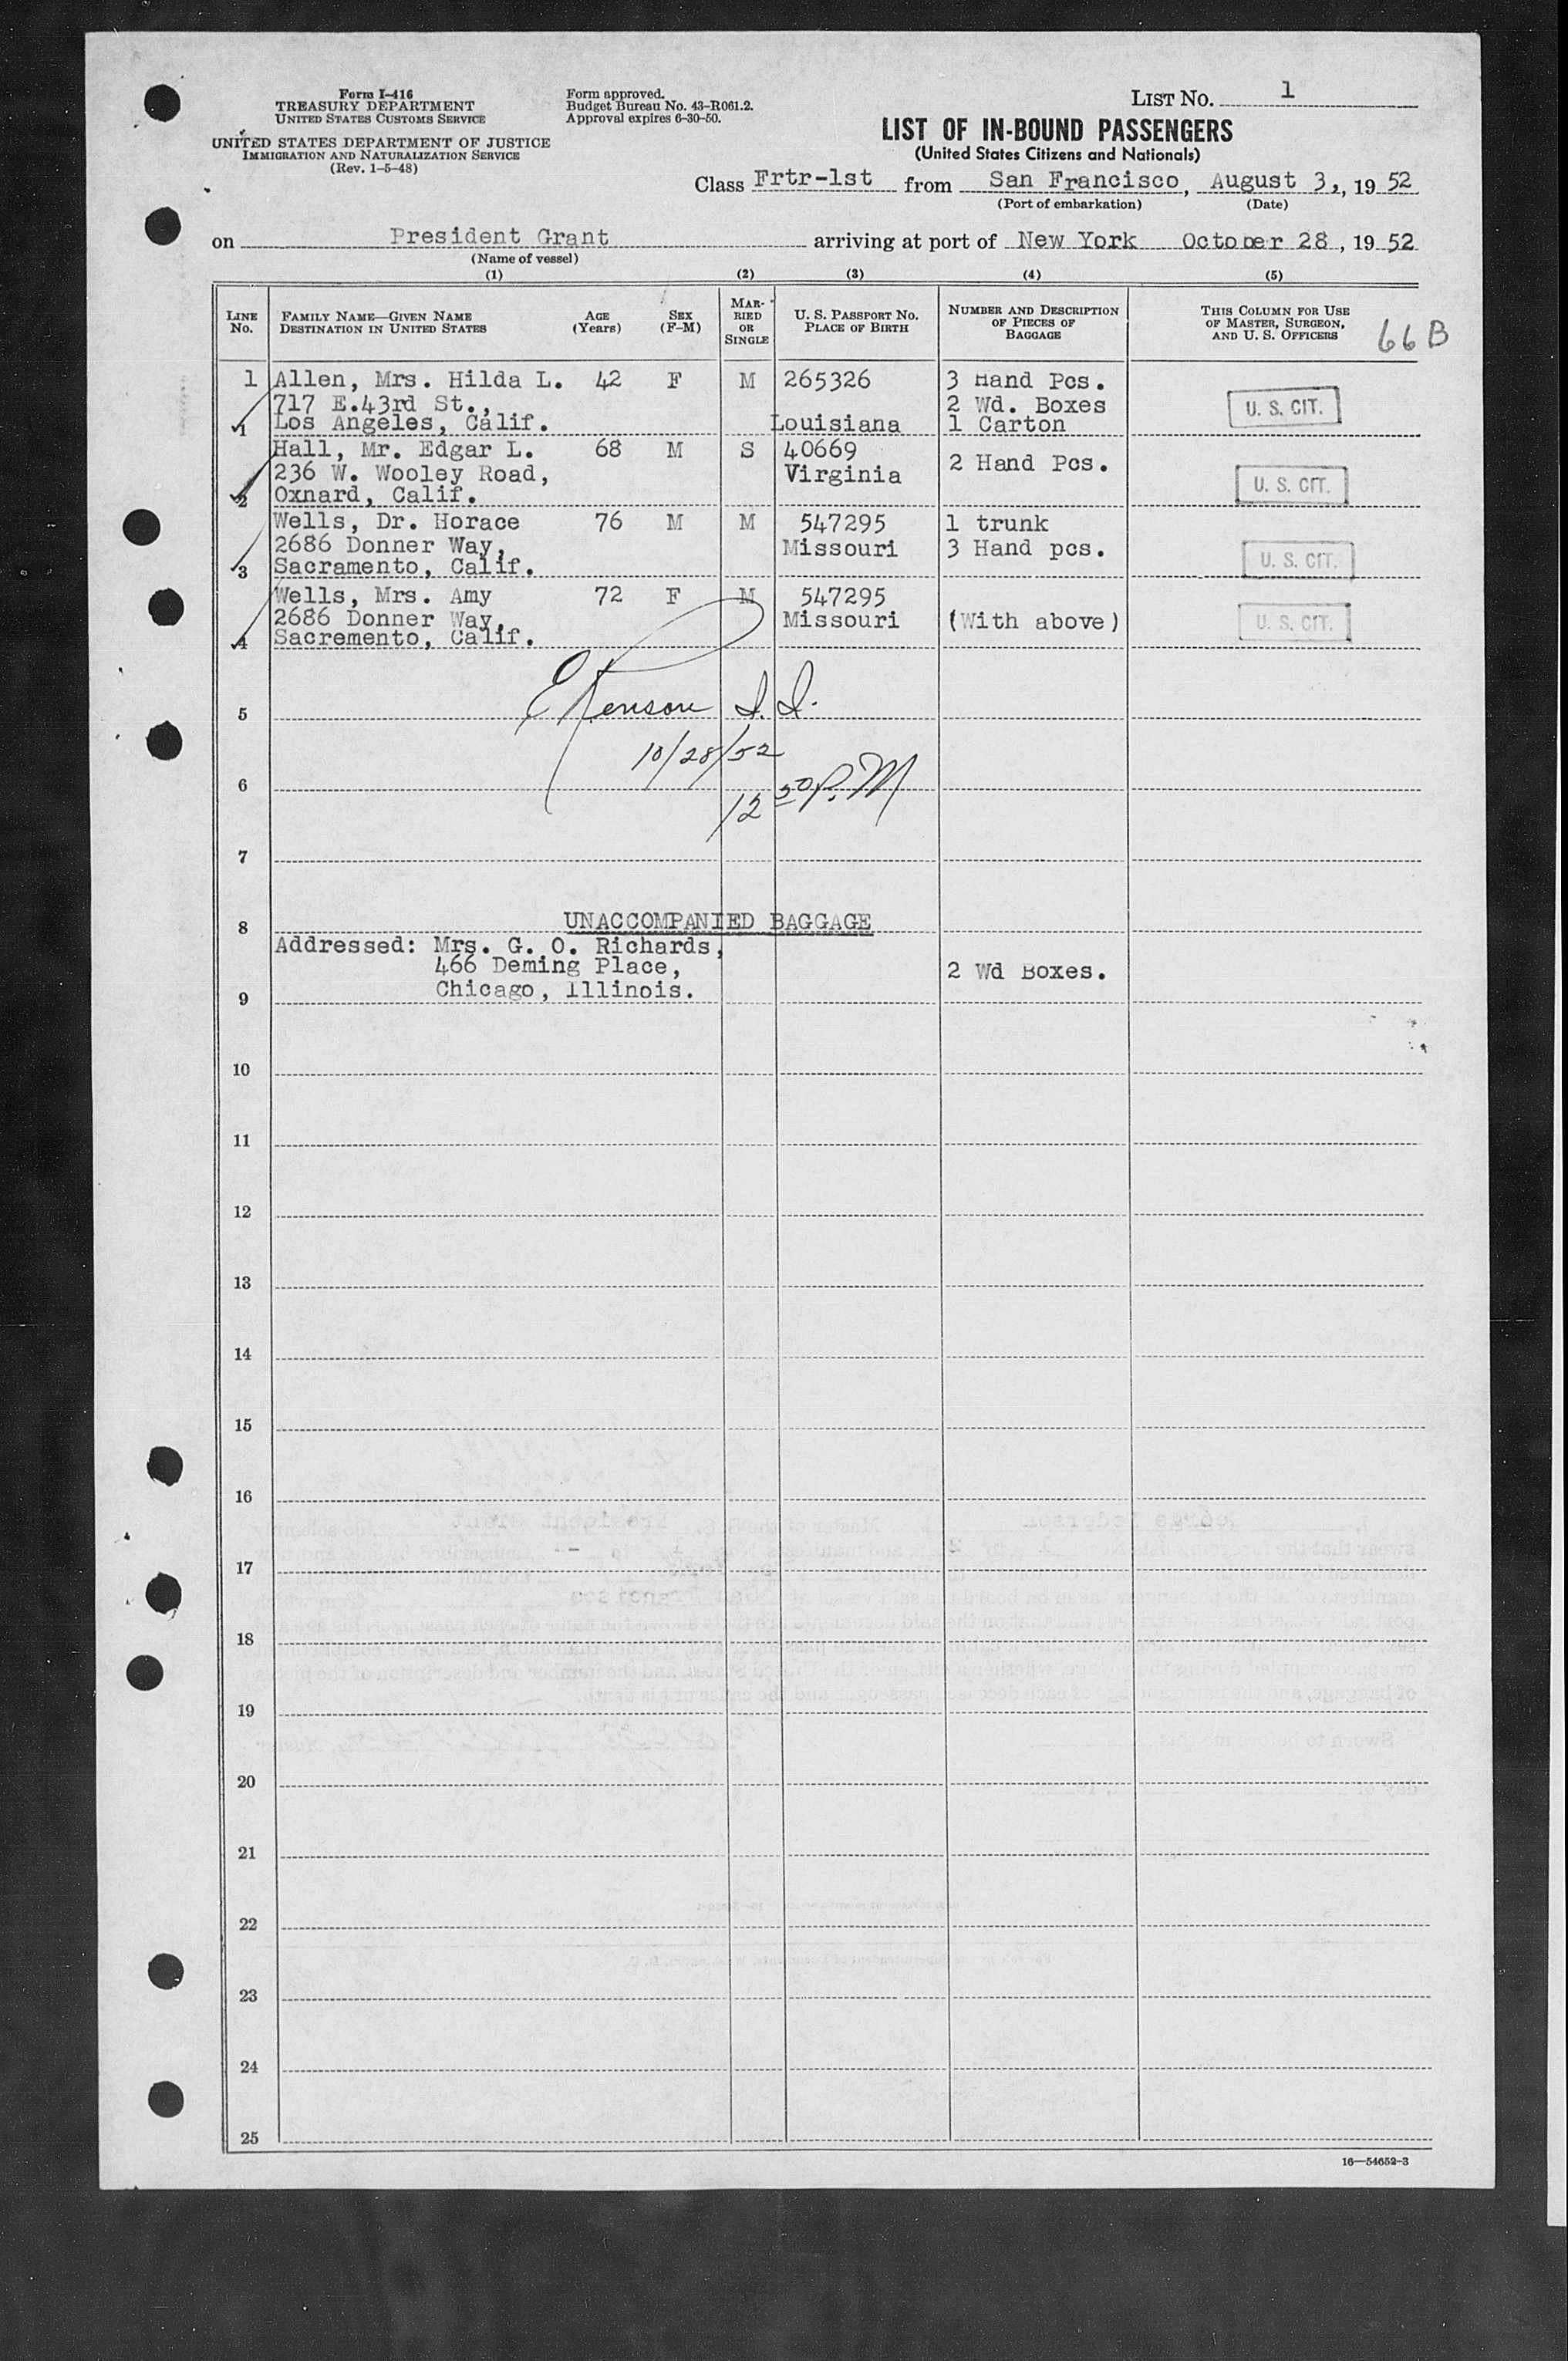 Form I-416
TREASURY DEPARTMENT
UNITED STATES CUSTOMS SERVICE
UNITED STATES DEPARTMENT OF JUSTICE
IMMIGRATION AND NATURALIZATION SERVICE
(Rev. 1-5-48)
Form approved.
Budget Bureau No. 43-R061.2.
Approval expires 6-30-50.
LIST NO. 1
LIST OF IN-BOUND PASSENGERS
(United States Citizens and Nationals)
Class Frtr-1st from San Francisco, August 3,, 19 52
(Port of embarkation) (Date)
on President Grant arriving at port of New York October 28, 19 52
(Name of vessel)
(1) (2) (3) (4) (5)
LINE NO. FAMILY NAME—GIVEN NAME DESTINATION IN UNITED STATES AGE (Years) SEX (F-M) MARRIED OR SINGLE U. S. PASSPORT NO. PLACE OF BIRTH NUMBER AND DESCRIPTION OF PIECES OF BAGGAGE THIS COLUMN FOR USE OF MASTER, SURGEON, AND U. S. OFFICERS 66B
1 Allen, Mrs. Hilda L. 42 F M 265326 3 Hand Pcs.
717 E.43rd St., 2 Wd. Boxes U. S. CIT.
1 Los Angeles, Calif. Louisiana 1 Carton
Hall, Mr. Edgar L. 68 M S 40669
236 W. Wooley Road, Virginia 2 Hand Pcs.
2 Oxnard, Calif. U. S. CIT.
Wells, Dr. Horace 76 M M 547295 1 trunk
2686 Donner Way, Missouri 3 Hand pcs.
3 Sacramento, Calif. U. S. CIT.
Wells, Mrs. Amy 72 F M 547295
2686 Donner Way, Missouri (With above) U. S. CIT.
4 Sacremento, Calif.
5
10/28/52
6
12 30 P.M
7
8 UNACCOMPANIED BAGGAGE
Addressed: Mrs. G. O. Richards,
466 Deming Place, 2 Wd Boxes.
9 Chicago, Illinois.
10
11
12
13
14
15
16
17
18
19
20
21
22
23
24
25
16—54652-3